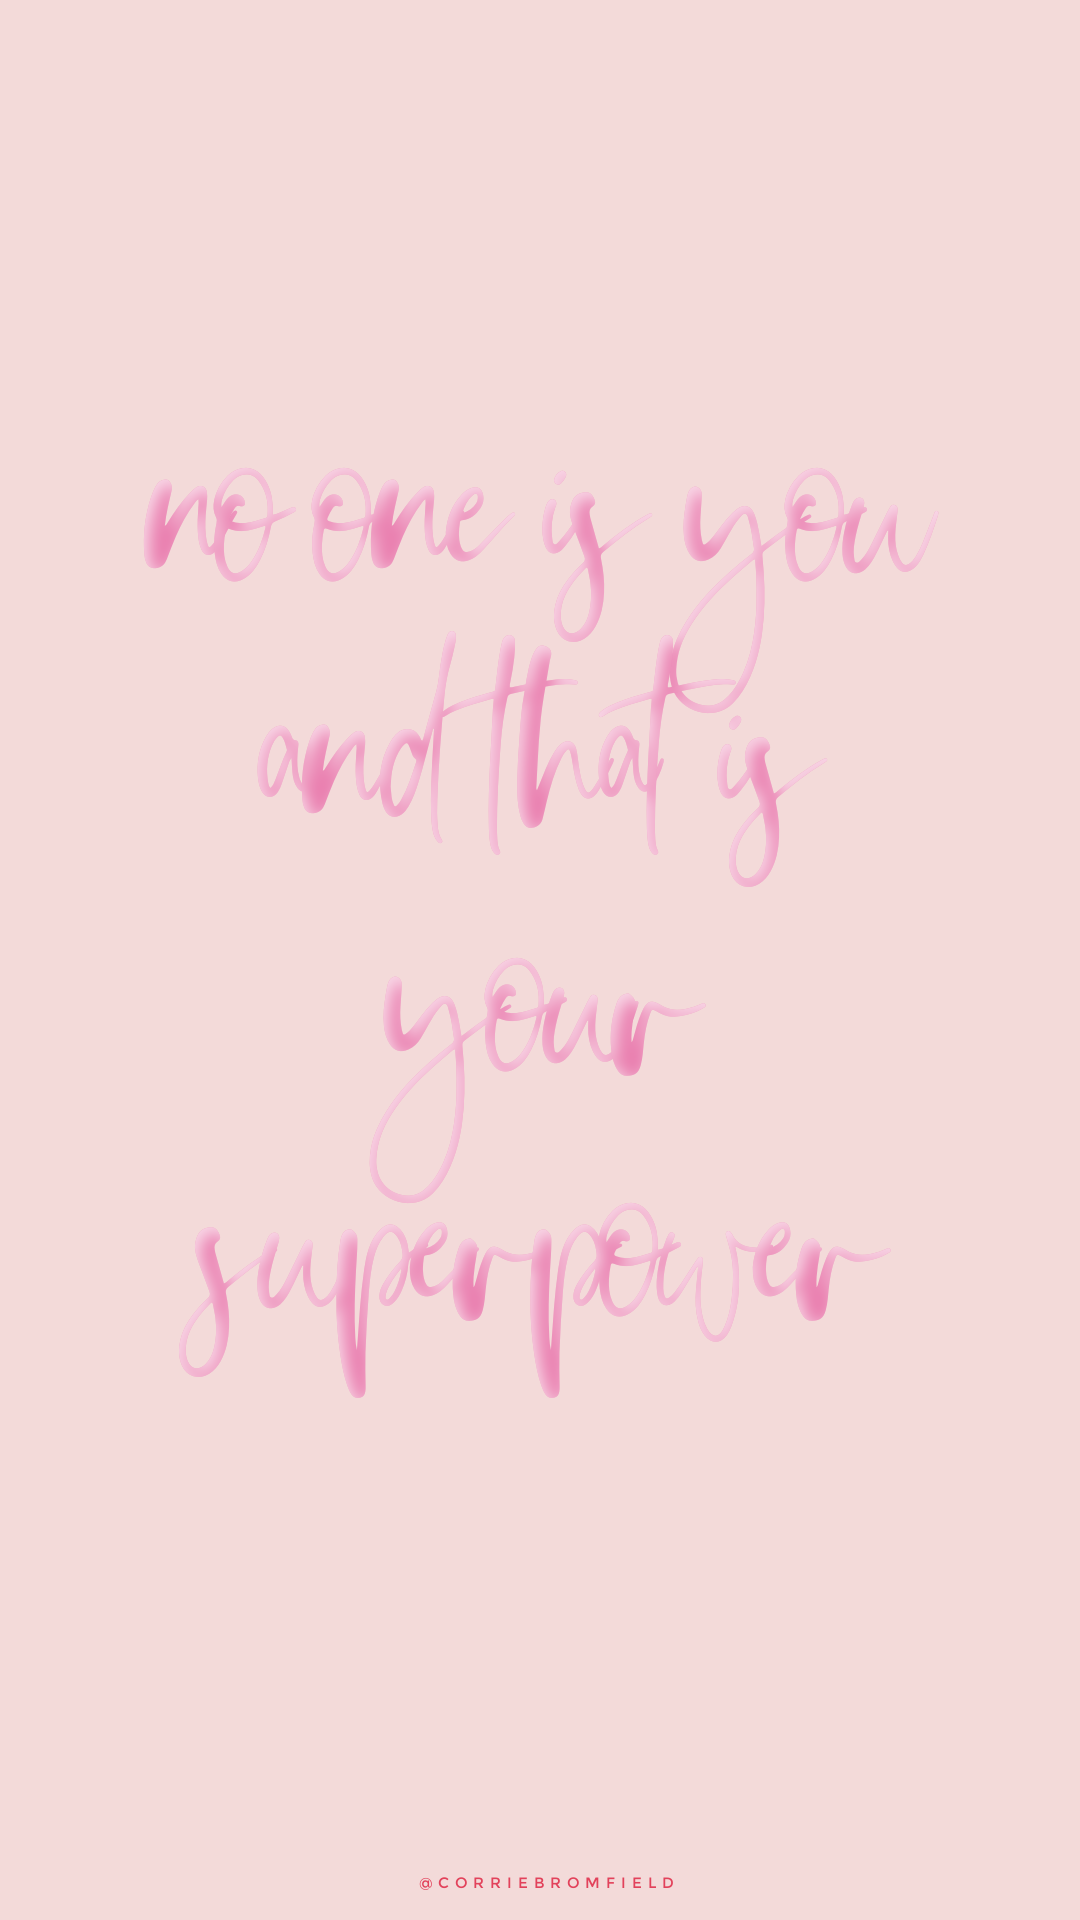 no one is you
and that is
your
superpower
@CORRIEBROMFIELD